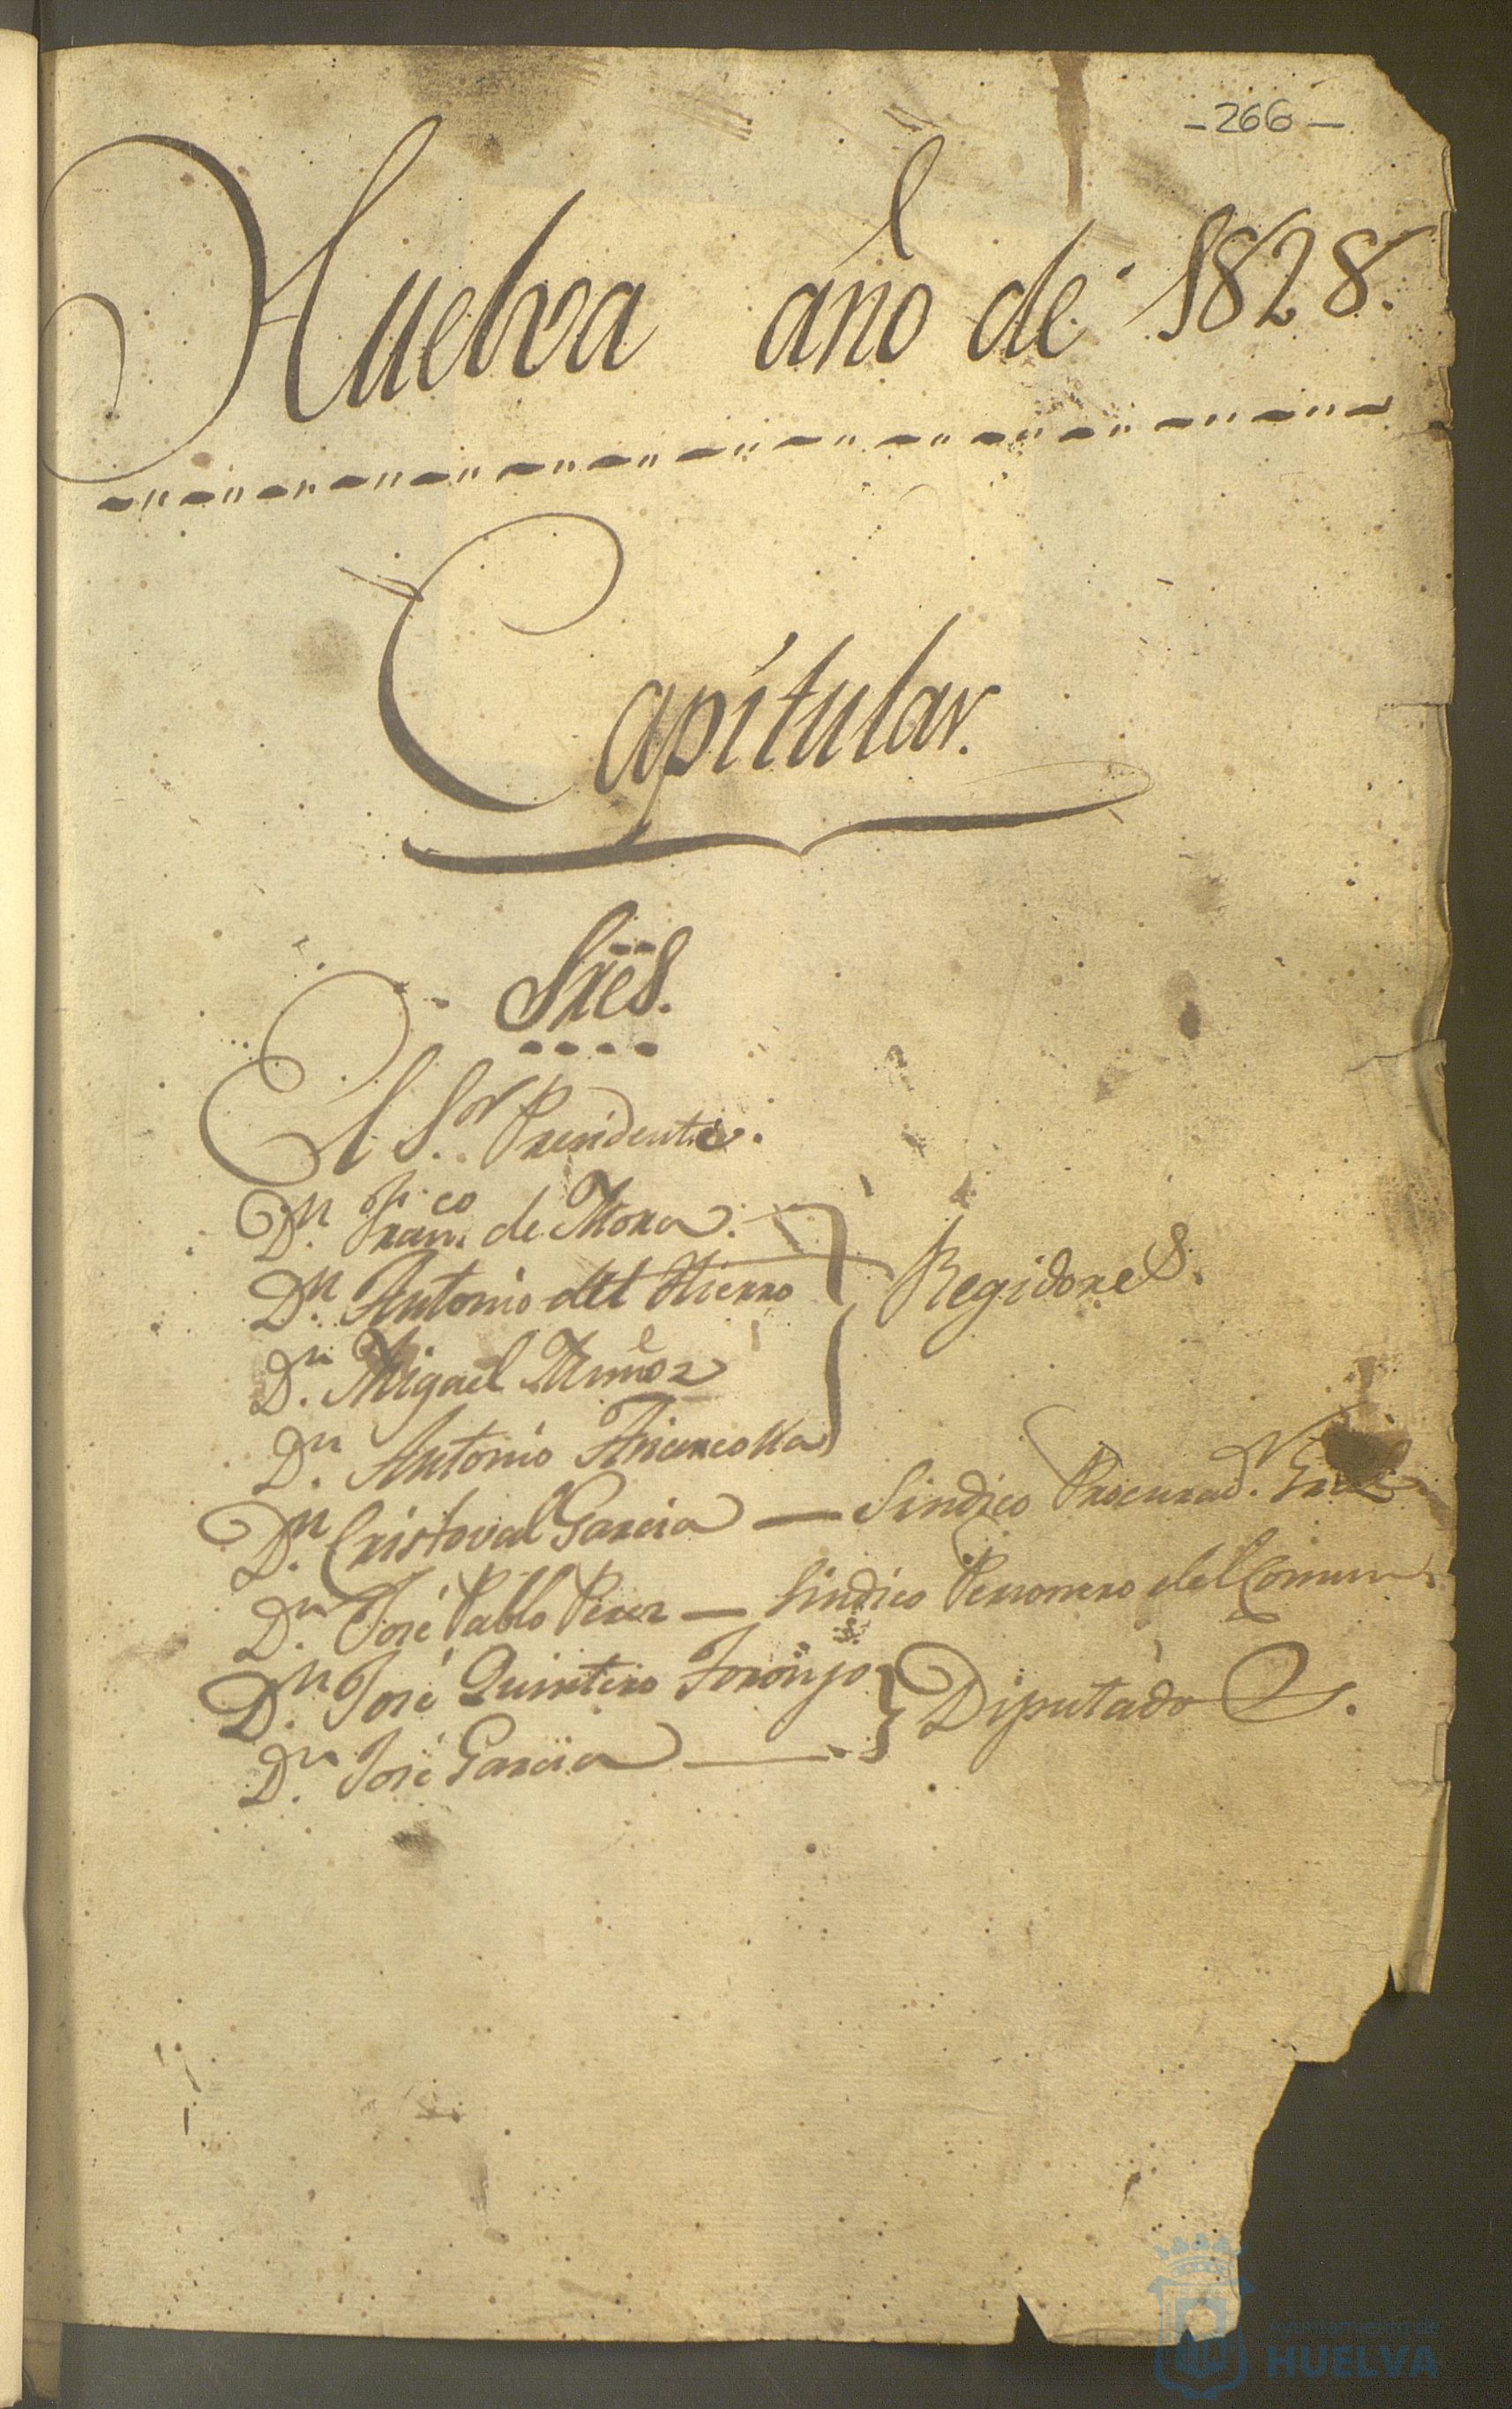 -266-
Huelva año de 1828.
Capitular.
Sres.
El Sor. Presidente.
Dn. Franco. de Mora.
Dn. Antonio del Hierro
Regidores.
Dn. Miguel Muñoz
Dn. Antonio
Dn. Cristoval Garcia — Sindico Procurador. Gral
Dn. José Pablo Perez — Sindico Personero del Comun.
Dn. José Quintero Toronjo
Diputados.
Dn. José Garcia
Ayuntamiento de
HUELVA